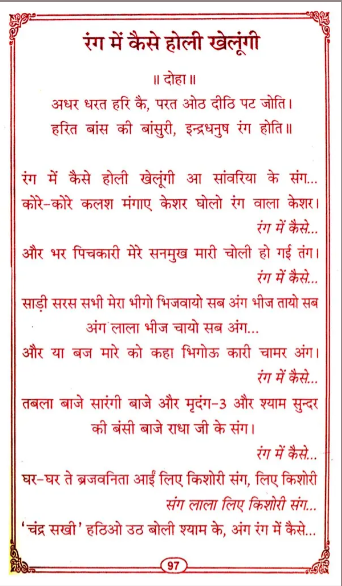 रंग में कैसे होली खेलूंगी
॥ दोहा ॥
अधर धरत हरि कै, परत ओठ दीठि पट जोति।
हरित बांस की बांसुरी, इन्द्रधनुष रंग होति॥
रंग में कैसे होली खेलूंगी आ सांवरिया के संग...
कोरे-कोरे कलश मंगाए केशर घोलो रंग वाला केशर।
रंग में कैसे...
और भर पिचकारी मेरे सनमुख मारी चोली हो गई तंग।
रंग में कैसे...
साड़ी सरस सभी मेरा भीगो भिजवायो सब अंग भीज तायो सब
अंग लाला भीज चायो सब अंग...
और या बज मारे को कहा भिगोऊ कारी चामर अंग।
रंग में कैसे...
तबला बाजे सारंगी बाजे और मृदंग-3 और श्याम सुन्दर
की बंसी बाजे राधा जी के संग।
रंग में कैसे...
घर-घर ते ब्रजवनिता आईं लिए किशोरी संग, लिए किशोरी
संग लाला लिए किशोरी संग...
'चंद्र सखी' हठिओ उठ बोली श्याम के, अंग रंग में कैसे...
97